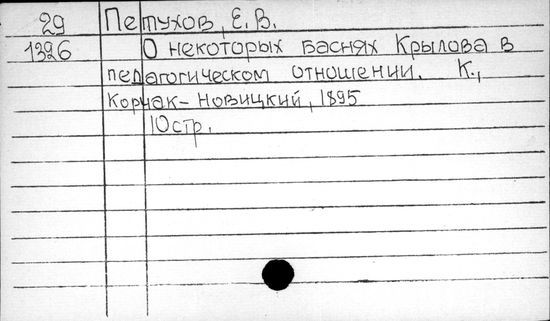 29 Петухов, Е. В.
1326 О некоторых баснях Крылова в
педагогическом отношении. К.,
Корчак-Новицкий, 1895
10 стр.